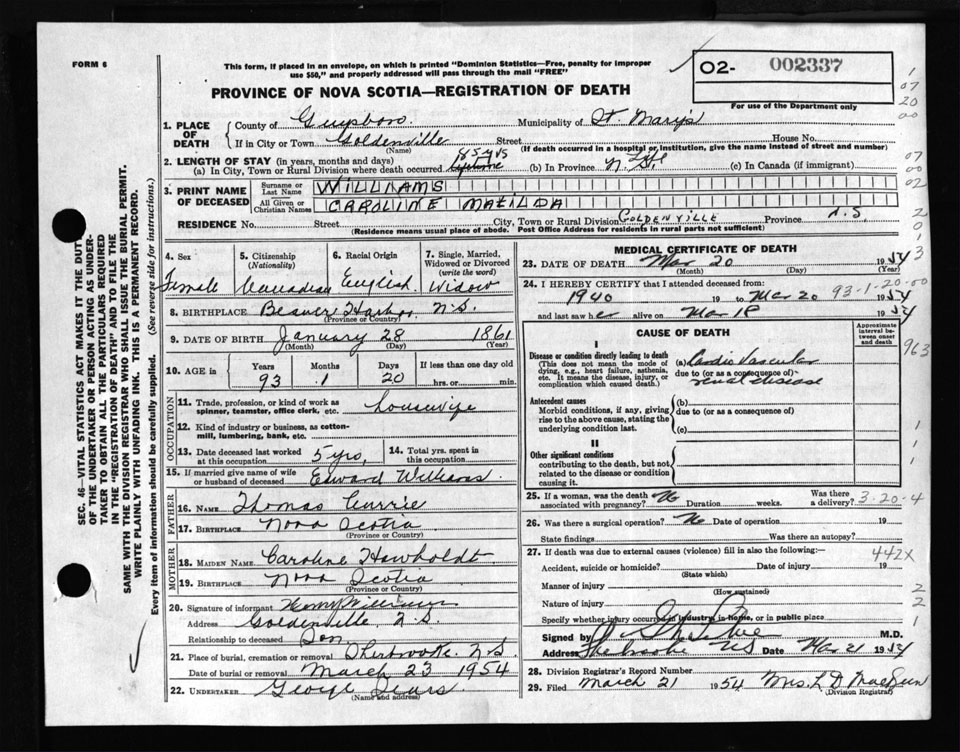 FORM 6
This form, if placed in an envelope, on which is printed "Dominion Statistics—Free, penalty for improper
use $50," and properly addressed will pass through the mail "FREE"
O2- 002337
For use of the Department only
PROVINCE OF NOVA SCOTIA—REGISTRATION OF DEATH
1. PLACE OF DEATH
County of Guysboro Municipality of St. Mary's
If in City or Town Goldenville Street House No.
(Name) (If death occurred in a hospital or institution, give the name instead of street and number)
2. LENGTH OF STAY (in years, months and days)
(a) In City, Town or Rural Division where death occurred 85 yrs (b) In Province (c) In Canada (if immigrant)
3. PRINT NAME OF DECEASED
Surname or Last Name WILLIAMS
All Given or Christian Names CAROLINE MATILDA
RESIDENCE No. Street City, Town or Rural Division GOLDENVILLE Province N.S.
(Residence means usual place of abode. Post Office Address for residents in rural parts not sufficient)
4. Sex Female
5. Citizenship (Nationality) Canadian
6. Racial Origin English
7. Single, Married, Widowed or Divorced (write the word) Widow
8. BIRTHPLACE Beaver Harbor, N.S.
(Province or Country)
9. DATE OF BIRTH January 28 1861
(Month) (Day) (Year)
10. AGE in Years 93 Months 1 Days 20 If less than one day old hrs. or min.
OCCUPATION
11. Trade, profession, or kind of work as spinner, teamster, office clerk, etc. housewife
12. Kind of industry or business, as cotton-mill, lumbering, bank, etc.
13. Date deceased last worked at this occupation 5 yrs.
14. Total yrs. spent in this occupation
15. If married give name of wife or husband of deceased Edward Williams
FATHER
16. NAME Thomas Currie
17. BIRTHPLACE Nova Scotia
(Province or Country)
MOTHER
18. MAIDEN NAME Caroline Hawboldt
19. BIRTHPLACE Nova Scotia
(Province or Country)
20. Signature of informant Williams
Address Goldenville, N.S.
Relationship to deceased Son
21. Place of burial, cremation or removal Sherbrooke N.S.
Date of burial or removal March 23 1954
22. UNDERTAKER George Sears
(Name and address)
MEDICAL CERTIFICATE OF DEATH
23. DATE OF DEATH Mar 20 1954
(Month) (Day) (Year)
24. I HEREBY CERTIFY that I attended deceased from:
1940 19 to Mar 20 1954
93-1-20-00
and last saw her alive on Mar 18 1954
CAUSE OF DEATH
Approximate interval between onset and death
963
I
Disease or condition directly leading to death
(This does not mean the mode of dying, e.g., heart failure, asthenia, etc. It means the disease, injury, or complication which caused death.)
(a) Cardio Vascular
due to (or as a consequence of)
renal disease
Antecedent causes
Morbid conditions, if any, giving rise to the above cause, stating the underlying condition last.
(b)
due to (or as a consequence of)
(c)
II
Other significant conditions
contributing to the death, but not related to the disease or condition causing it.
25. If a woman, was the death associated with pregnancy? No Duration weeks. Was there a delivery?
3-20-4
26. Was there a surgical operation? No Date of operation 19
State findings Was there an autopsy?
27. If death was due to external causes (violence) fill in also the following:—
442X
Accident, suicide or homicide? Date of injury 19
(State which)
Manner of injury
(How sustained)
Nature of injury
Specify whether injury occurred in industry, in home, or in public place
Signed by M.D.
Address Sherbrooke NS Date Mar 21 1954
28. Division Registrar's Record Number
29. Filed March 21 1954 Mrs. L D
(Division Registrar)
SEC. 46—VITAL STATISTICS ACT MAKES IT THE DUTY
OF THE UNDERTAKER OR PERSON ACTING AS UNDER-
TAKER TO OBTAIN ALL THE PARTICULARS REQUIRED
IN THE "REGISTRATION OF DEATH" AND TO FILE THE
SAME WITH THE DIVISION REGISTRAR WHO SHALL ISSUE THE BURIAL PERMIT.
WRITE PLAINLY WITH UNFADING INK. THIS IS A PERMANENT RECORD.
Every item of information should be carefully supplied. (See reverse side for instructions.)